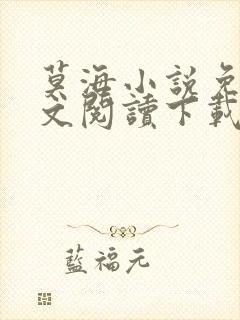 莫海小説免
文閱讀下載
藍福元